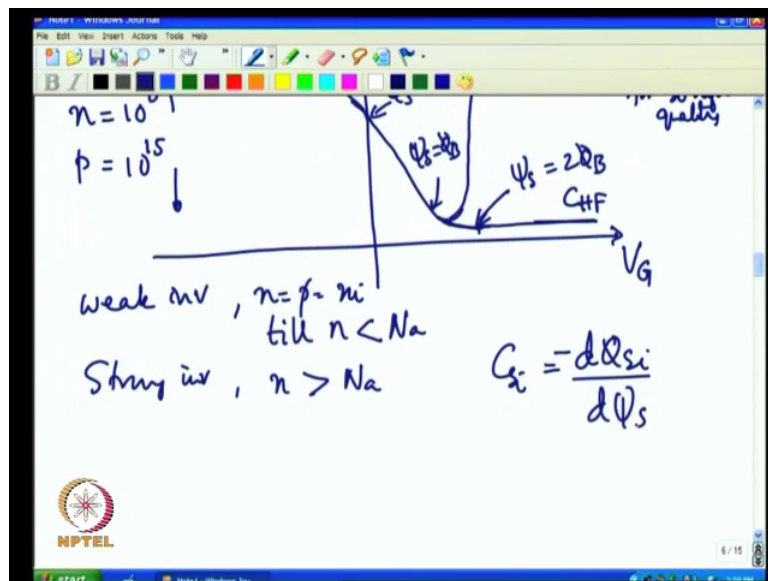 Note1 - Windows Journal
File Edit View Insert Actions Tools Help
B I
p = 10^15
quality
ψs = φB
ψs = 2φB
CHF
VG
weak inv , n = p = ni
till n < Na
Strong inv , n > Na
= -dQsi
dψs
NPTEL
6 / 15
start